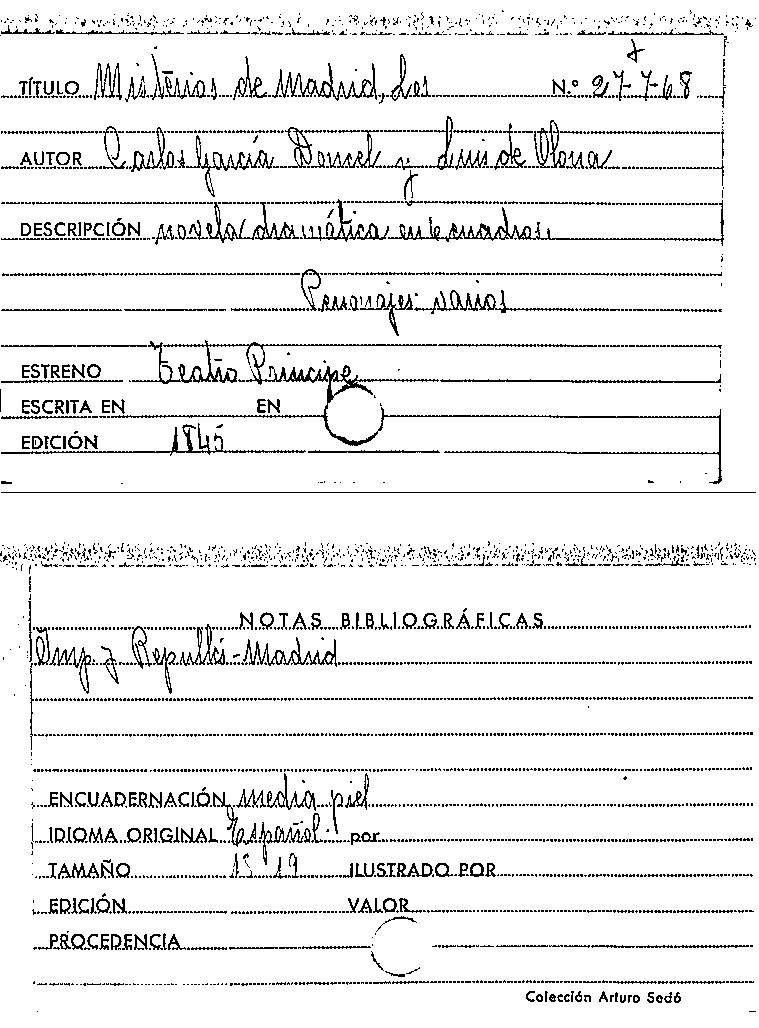 TÍTULO Misterios de Madrid, Los N.º 27-7-68
AUTOR Carlos García Doncel y Luis de Olona
DESCRIPCIÓN novela dramática en 6 cuadros.
Personajes: varios
ESTRENO Teatro Principe
ESCRITA EN EN
EDICIÓN 1845
NOTAS BIBLIOGRÁFICAS
Imp. J. Repullés - Madrid
ENCUADERNACIÓN media piel
IDIOMA ORIGINAL Español. por
TAMAÑO 13 19 ILUSTRADO POR
EDICIÓN VALOR
PROCEDENCIA
Colección Arturo Sedó